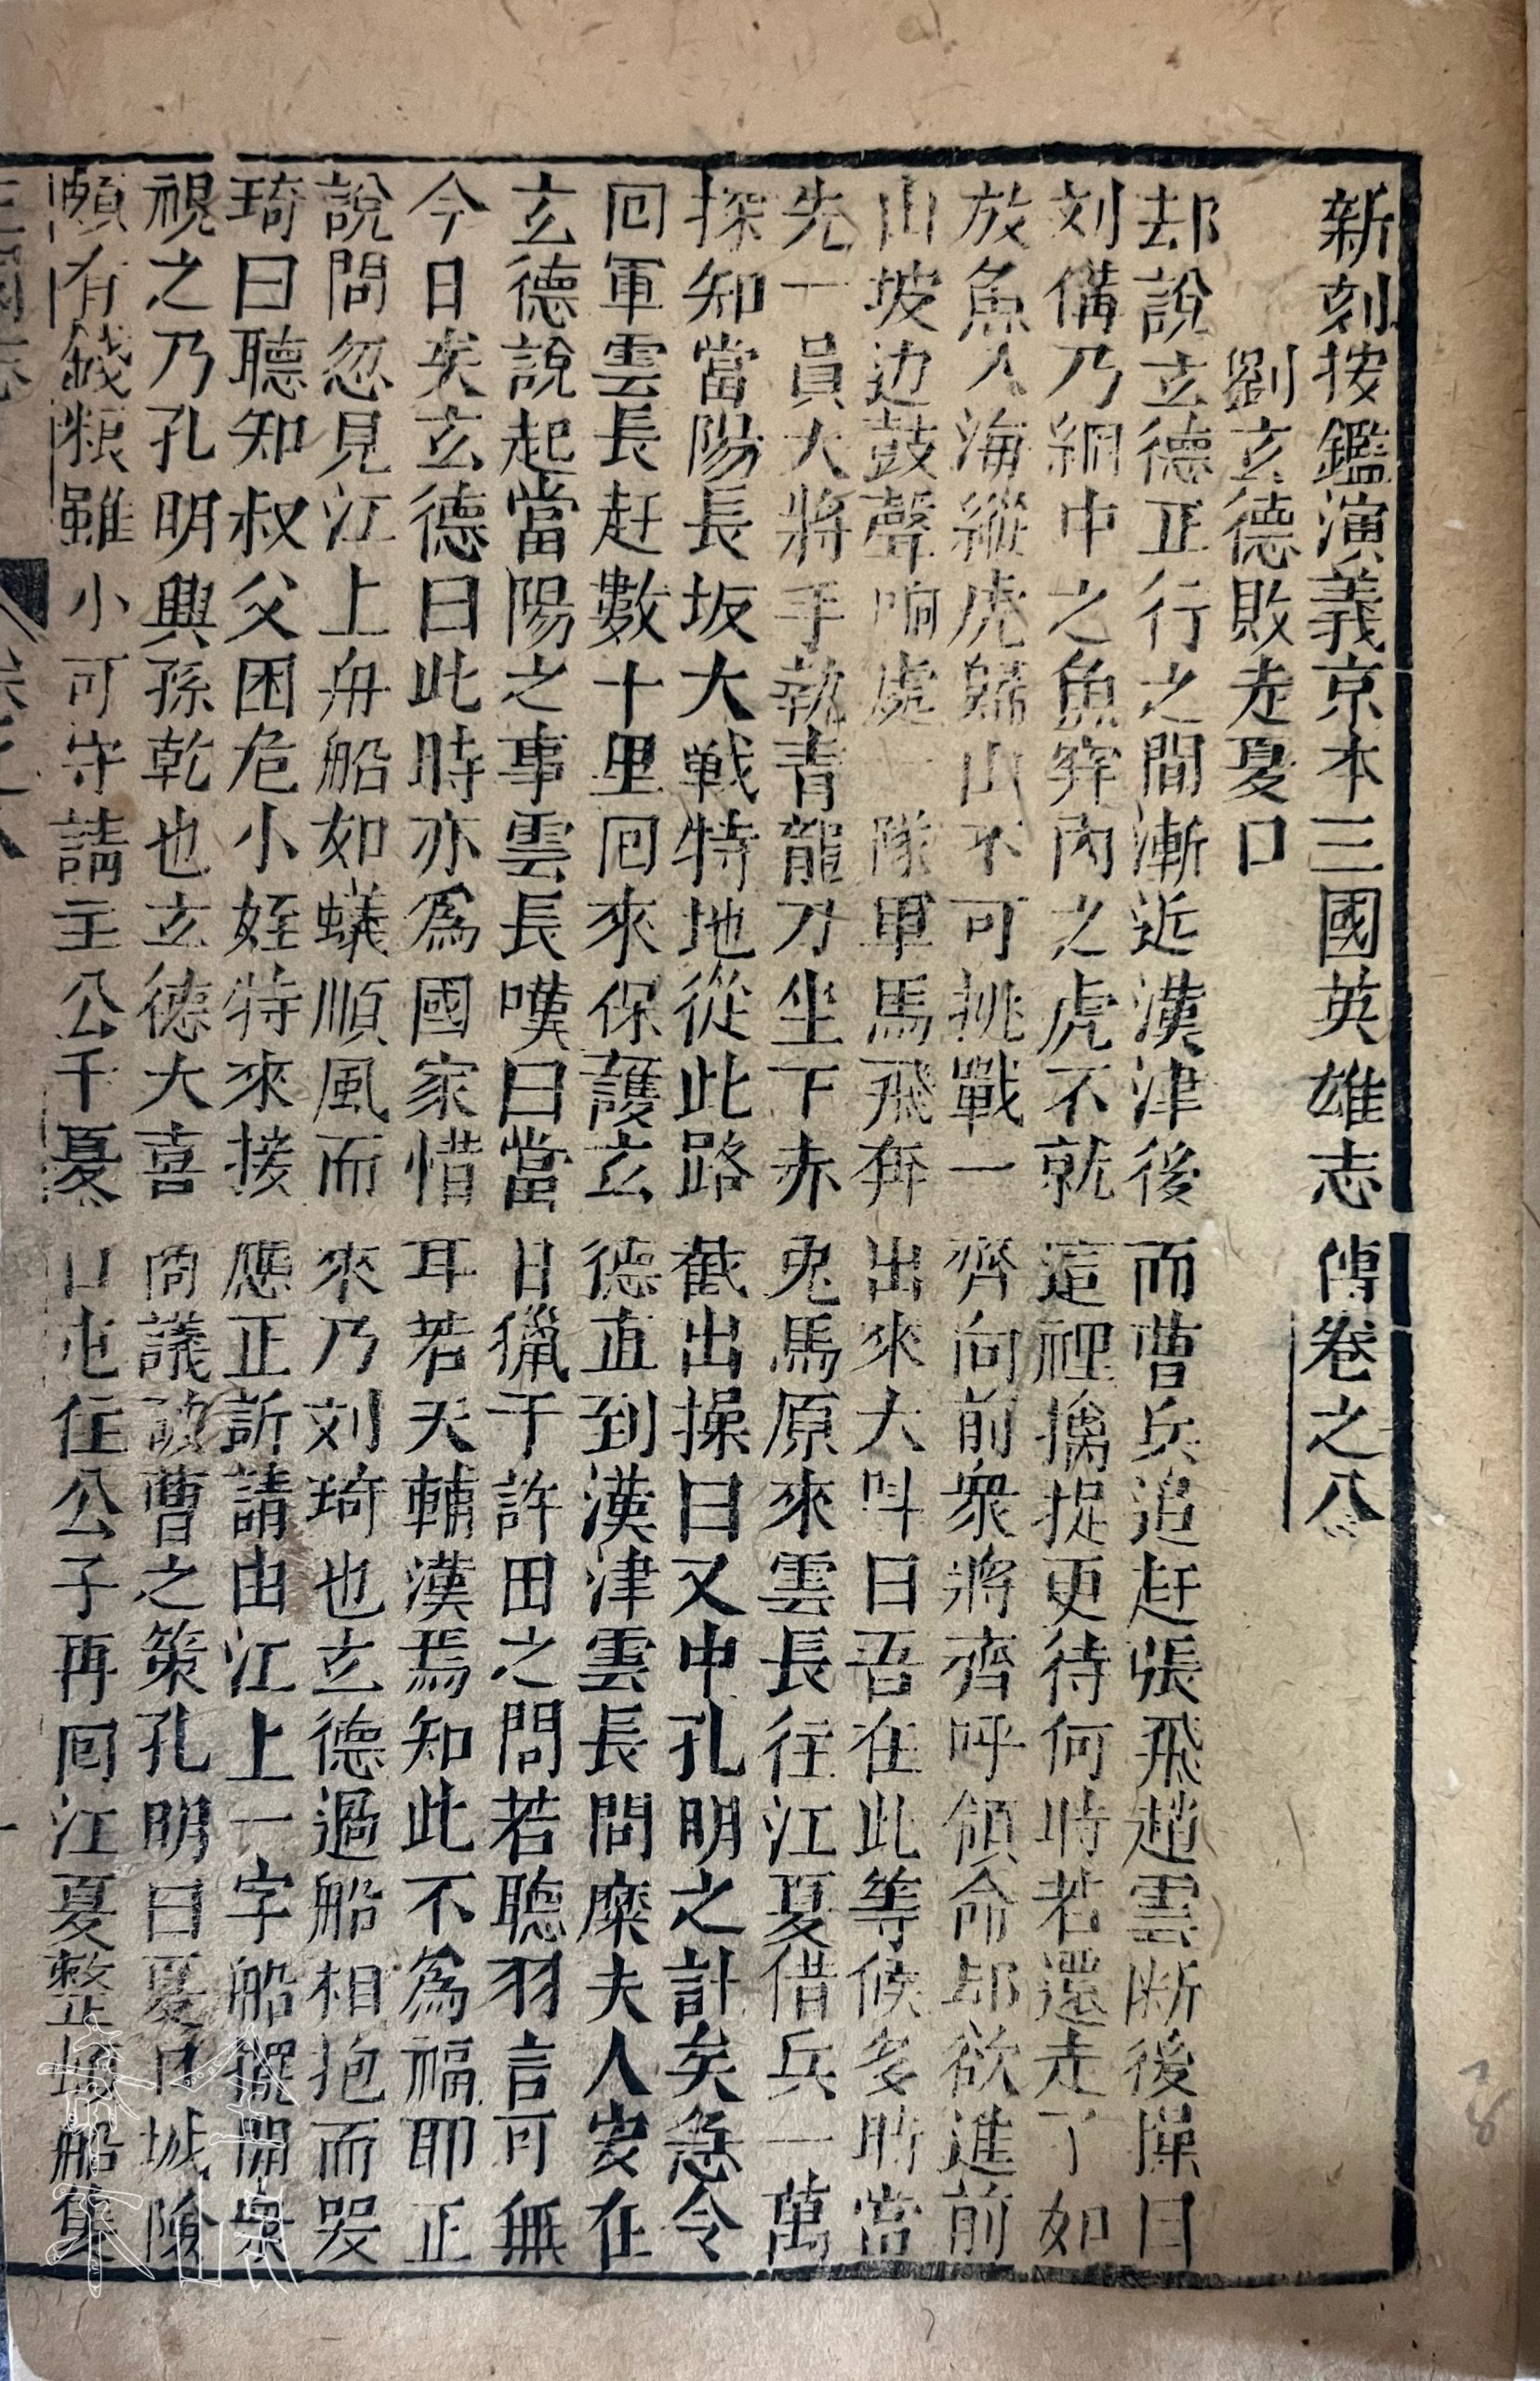 新刻按鑑演義京本三國英雄志傳卷之八
劉玄德敗走夏口
却說玄德正行之間漸近漢津後而曹兵追赶張飛趙雲断後操曰
刘備乃網中之魚穽內之虎不就這裡擒捉更待何時若還走了如
放魚入海縱虎歸山不可挑戰一齊向前衆將齊呼領命却欲進前
山坡边鼓聲响處一隊軍馬飛奔出來大呌曰吾在此等候多時當
先一員大將手執青龍刀坐下赤兎馬原來雲長往江夏借兵一萬
探知當陽長坂大戦特地從此路截出操曰又中孔明之計矣急令
囘軍雲長赶數十里囘來保護玄德直到漢津雲長問糜夫人安在
玄德說起當陽之事雲長嘆曰當日獵于許田之問若聽羽言可無
今日矣玄德曰此時亦為國家惜耳若天輔漢焉知此不為福耶正
說問忽見江上舟船如蟻順風而來乃刘琦也玄德過船相抱而哭
琦曰聽知叔父困危小姪特來接應正訴請由江上一字船擺開衆
視之乃孔明與孫乾也玄德大喜問議破曹之策孔明曰夏口城險
頗有錢粮雖小可守請主公千夏口屯住公子再囘江夏整 船隻